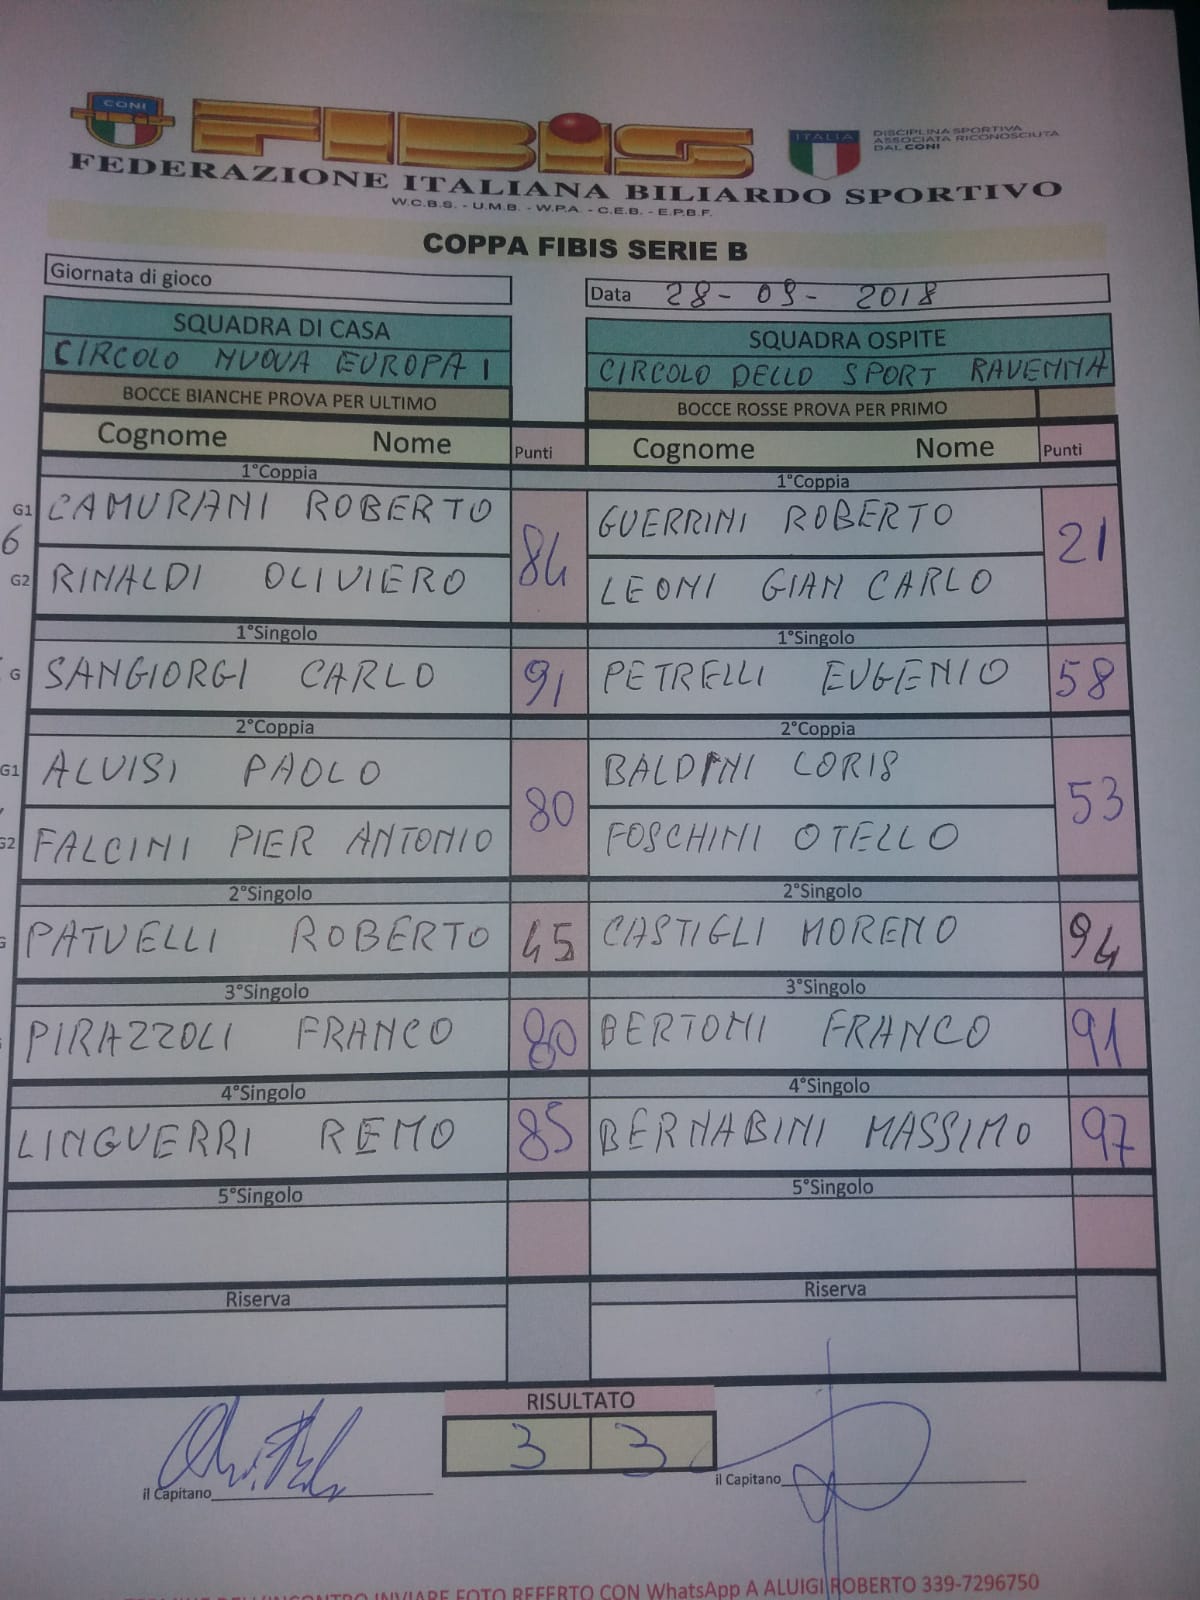 CONI
FIBIS
ITALIA
DISCIPLINA SPORTIVA
ASSOCIATA RICONOSCIUTA
DAL CONI
FEDERAZIONE ITALIANA BILIARDO SPORTIVO
W.C.B.S. - U.M.B. - W.P.A. - C.E.B. - E.P.B.F.
COPPA FIBIS SERIE B
Giornata di gioco
Data 28-09-2018
SQUADRA DI CASA SQUADRA OSPITE
CIRCOLO NUOVA EUROPA 1 CIRCOLO DELLO SPORT RAVENNA
BOCCE BIANCHE PROVA PER ULTIMO BOCCE ROSSE PROVA PER PRIMO
Cognome Nome Punti Cognome Nome Punti
1°Coppia 1°Coppia
G1 CAMURANI ROBERTO 84 GUERRINI ROBERTO 21
6
G2 RINALDI OLIVIERO LEONI GIAN CARLO
1°Singolo 1°Singolo
G SANGIORGI CARLO 91 PETRELLI EUGENIO 58
2°Coppia 2°Coppia
G1 ALUISI PAOLO 80 BALDINI LORIS 53
G2 FALCINI PIER ANTONIO FOSCHINI OTELLO
2°Singolo 2°Singolo
G PATUELLI ROBERTO 45 CASTIGLI MORENO 94
3°Singolo 3°Singolo
PIRAZZOLI FRANCO 80 BERTONI FRANCO 91
4°Singolo 4°Singolo
LINGUERRI REMO 85 BERNABINI MASSIMO 97
5°Singolo 5°Singolo
Riserva Riserva
RISULTATO
3 3
il Capitano il Capitano
TERMINE DELL'INCONTRO INVIARE FOTO REFERTO CON WhatsApp A ALUIGI ROBERTO 339-7296750